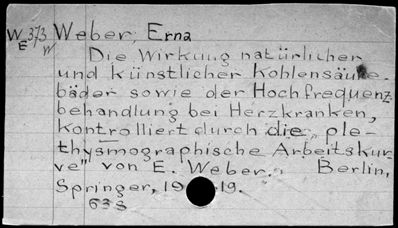 W 373 Weber, Erna
E W
Die Wirkung natürlicher
und künstlicher Kohlensäure-
bäder sowie der Hochfrequenz
behandlung bei Herzkranken,
kontrolliert durch die „ple-
thysmographische Arbeitskur-
ve" von E. Weber. Berlin,
Springer, 19 19.
63 s